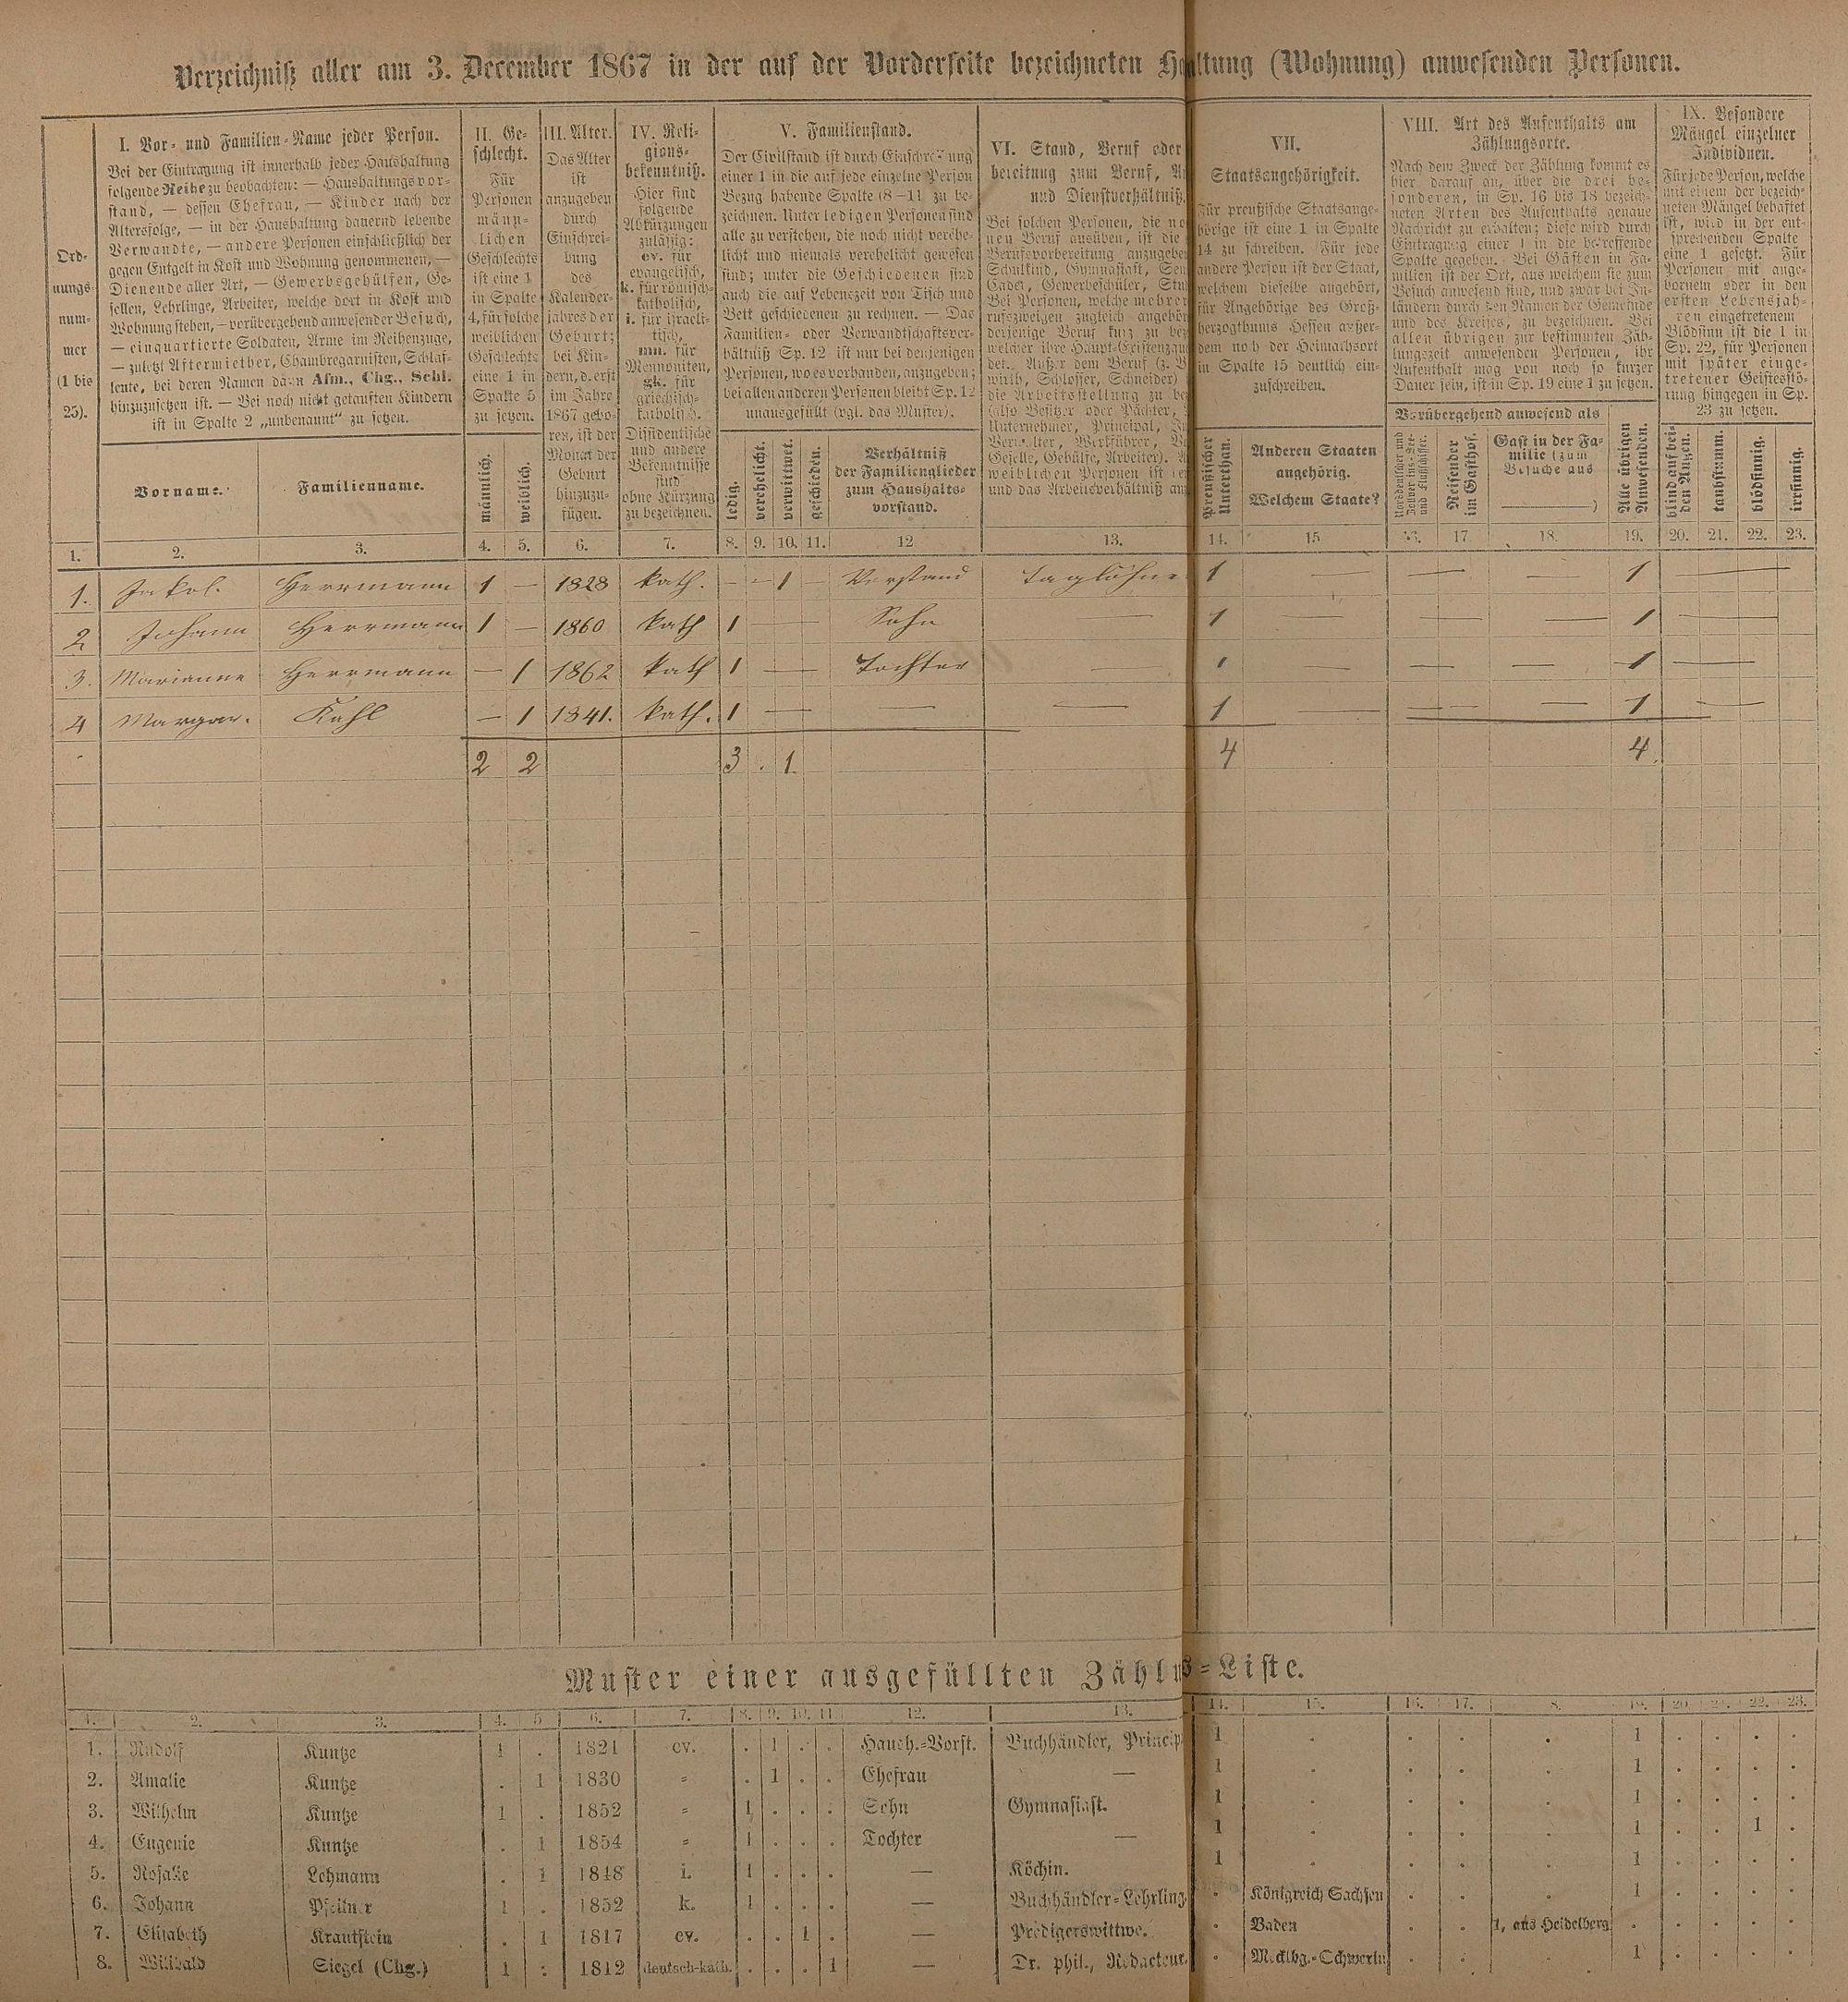 Verzeichniß aller am 3. December 1867 in der auf der Vorderseite bezeichneten Haltung (Wohnung) anwesenden Personen.
Ord-
nungs-
num-
mer
(1 bis
25).
I. Vor- und Familien-Name jeder Person.
Bei der Eintragung ist innerhalb jeder Haushaltung
folgende Reihe zu beobachten: — Haushaltungsvor-
stand, — dessen Ehefrau, — Kinder nach der
Altersfolge, — in der Haushaltung dauernd lebende
Verwandte, — andere Personen einschließlich der
gegen Entgelt in Kost und Wohnung genommenen, —
Dienende aller Art, — Gewerbsgehülfen, Ge-
sellen, Lehrlinge, Arbeiter, welche dort in Kost und
Wohnung stehen, — vorübergehend anwesender Besuch,
— einquartierte Soldaten, Arme im Reihenzuge,
— zuletzt Aftermiether, Chambregarnisten, Schlaf-
leute, bei deren Namen dann Afm., Chg., Schl.
hinzuzusetzen ist. — Bei noch nicht getauften Kindern
ist in Spalte 2 „unbenannt“ zu setzen.
Vorname.
Familienname.
II. Ge-
schlecht.
Für
Personen
männ-
lichen
Geschlechts
ist eine 1
in Spalte
4, für solche
weiblichen
Geschlechts
eine 1 in
Spalte 5
zu setzen.
männlich.
weiblich.
III. Alter.
Das Alter
ist
anzugeben
durch
Einschrei-
bung
des
Kalender-
jahres der
Geburt;
bei Kin-
dern, d. erst
im Jahre
1867 gebo-
ren, ist der
Monat der
Geburt
hinzuzu-
fügen.
IV. Reli-
gions-
bekenntniß.
Hier sind
folgende
Abkürzungen
zulässig:
ev. für
evangelisch,
k. für römisch-
katholisch,
i. für israeli-
tisch,
mn. für
Mennoniten,
gk. für
griechisch-
katholisch.
Dissidentische
und andere
Bekenntnisse
sind
ohne Kürzung
zu bezeichnen.
V. Familienstand.
Der Civilstand ist durch Einschreibung
einer 1 in die auf jede einzelne Person
Bezug habende Spalte (8–11 zu be-
zeichnen. Unter ledigen Personen sind
alle zu verstehen, die noch nicht verehe-
licht und niemals verehelicht gewesen
sind; unter die Geschiedenen sind
auch die auf Lebenszeit von Tisch und
Bett geschiedenen zu rechnen. — Das
Familien- oder Verwandtschaftsver-
hältniß Sp. 12 ist nur bei denjenigen
Personen, wo es vorhanden, anzugeben;
bei allen anderen Personen bleibt Sp. 12
unausgefüllt (vgl. das Muster).
ledig.
verehelicht.
verwittwet.
geschieden.
Verhältniß
der Familienglieder
zum Haushalts-
vorstand.
VI. Stand, Beruf oder
bereitung zum Beruf, A
und Dienstverhältniß.
Bei solchen Personen, die no
nen Beruf ausüben, ist die
Berufsvorbereitung anzugeben
Schulkind, Gymnasiast, Sem
Cadet, Gewerbeschüler, Stu
Bei Personen, welche mehrer
rufszweigen zugleich angehör
derjenige Beruf kurz zu be
welcher ihre Haupt-Existenzqu
det. Außer dem Beruf (z. B
wirth, Schlosser, Schneider)
die Arbeitsstellung zu be
(also Besitzer oder Pächter,
Unternehmer, Principal, In
Verwalter, Werkführer,
Geselle, Gehülfe, Arbeiter).
weiblichen Personen ist
und das Arbeitsverhältniß an
VII.
Staatsangehörigkeit.
Für preußische Staatsange-
hörige ist eine 1 in Spalte
14 zu schreiben. Für jede
andere Person ist der Staat,
welchem dieselbe angehört,
für Angehörige des Groß-
herzogthums Hessen außer-
dem noch der Heimathsort
in Spalte 15 deutlich ein-
zuschreiben.
Preußischer
Unterthan.
Anderen Staaten
angehörig.
Welchem Staate?
VIII. Art des Aufenthalts am
Zählungsorte.
Nach dem Zweck der Zählung kommt es
hier darauf an, über die drei be-
sonderen, in Sp. 16 bis 18 bezeich-
neten Arten des Aufenthalts genaue
Nachricht zu erhalten; diese wird durch
Eintragung einer 1 in die betreffende
Spalte gegeben. Bei Gästen in Fa-
milien ist der Ort, aus welchem sie zum
Besuch anwesend sind, und zwar bei In-
ländern durch den Namen der Gemeinde
und des Kreises, zu bezeichnen. Bei
allen übrigen zur bestimmten Zäh-
lungszeit anwesenden Personen, ihr
Aufenthalt mag von noch so kurzer
Dauer sein, ist in Sp. 19 eine 1 zu setzen.
Vorübergehend anwesend als
Norddeutscher und
Zollvereins-See-
und Flußschiffer.
Reisender
im Gasthof.
Gast in der Fa-
milie (zum
Besuche aus
)
Alle übrigen
Anwesenden.
IX. Besondere
Mängel einzelner
Individuen.
Für jede Person, welche
mit einem der bezeich-
neten Mängel behaftet
ist, wird in der ent-
sprechenden Spalte
eine 1 gesetzt. Für
Personen mit ange-
bornem oder in den
ersten Lebensjah-
ren eingetretenem
Blödsinn ist die 1 in
Sp. 22, für Personen
mit später einge-
tretener Geistesstö-
rung hingegen in Sp.
23 zu setzen.
blind auf bei-
den Augen.
taubstumm.
blödsinnig.
irrsinnig.
1. 2. 3. 4. 5. 6. 7. 8. 9. 10. 11. 12 13. 14. 15 16. 17 18. 19. 20. 21. 22. 23.
1. Jakob. Herrmann 1 — 1828 kath. - - 1 — Vorstand Taglöhne 1 — — — 1 —
2 Johann Herrmann 1 — 1860 kath 1 — Sohn — 1 — — — 1 —
3. Marianne Herrmann — 1 1862 kath 1 — Tochter — 1 — — — 1 —
4 Margar. Kahl — 1 1841. kath. 1 — — — 1 — — — 1 —
2 2 3 . 1 4 4
Muster einer ausgefüllten Zählu s-Liste.
1. 2. 3. 4. 5 6. 7. 8. 9. 10. 11 12. 13. 14. 15. 16. 17. 8. 19. 20. 21. 22. 23.
1. Rudolf Kuntze 1 . 1821 ev. . 1 . . Haush.-Vorst. Buchhändler, Princip 1 . . . . 1 . . . .
2. Amalie Kuntze . 1 1830 = . 1 . . Ehefrau — 1 . . . . 1 . . . .
3. Wilhelm Kuntze 1 . 1852 = 1 . . . Sohn Gymnasiast. 1 . . . . 1 . . . .
4. Eugenie Kuntze . 1 1854 = 1 . . . Tochter — 1 . . . . 1 . . 1 .
5. Rosalie Lehmann . 1 1848 i. 1 . . . — Köchin. 1 . . . . 1 . . . .
6. Johann Pfeilner 1 . 1852 k. 1 . . . — Buchhändler-Lehrling . Königreich Sachsen . . . 1 . . . .
7. Elisabeth Krautstein . 1 1817 ev. . . 1 . — Predigerswittwe. . Baden . . 1, aus Heidelberg . . . . .
8. Willibald Siegel (Chg.) 1 : 1812 deutsch-kath. . . . 1 — Dr. phil., Redacteur. . Mecklbg.-Schwerin . . . 1 . . . .